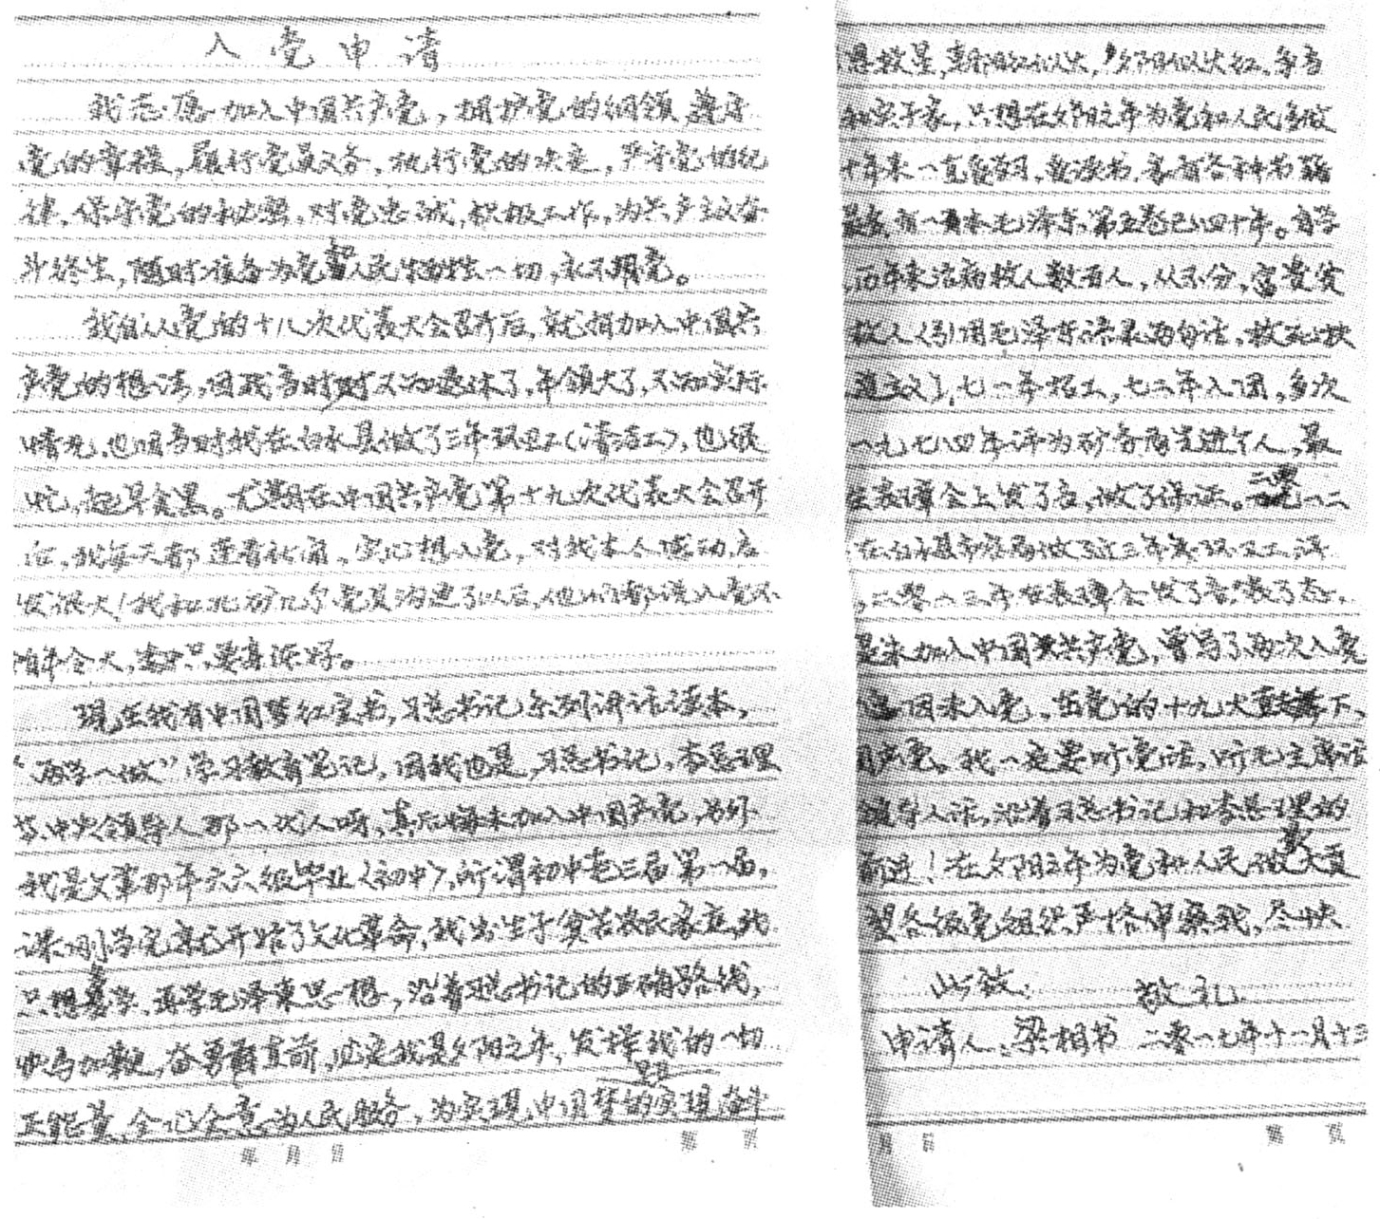 入党申请
我志愿加入中国共产党，拥护党的纲领，遵守
党的章程，履行党员义务，执行党的决定，严守党的纪
律，保守党的秘密，对党忠诚，积极工作，为共产主义奋
斗终生，随时准备为党和人民牺牲一切，永不叛党。
我自从党的十八次代表大会召开后，就有加入中国共
产党的想法，因我当时又退休了，年领大了，又实际
情况，也因当时我在白水县做了三年环卫工（清洁工），也很
忙，起早贪黑。尤其在中国共产党第十九次代表大会召开
后，我每天都看新闻，实心想入党，对我本人感动启
发很大！我和几个党员沟通了以后，他们都说入党不
怕年令大，只要真诚好。
现在我有中国梦红宝书，习总书记系列讲话读本，
“两学一做”学习教育笔记，因我也是，习总书记，李总理
等，中央领导人那一代人呀，真后悔未加入中国产党，
我是文革那年六六级毕业（初中），所谓初中老三届第一届，
课刚学完就开始了文化革命，我出生于贫苦农民家庭，我
只想学，再学毛泽东思想，沿着习总书记的正确路线，
快马加鞭，奋勇直前，应定我是夕阳之年，发挥我的一切
正能量，全心全意为人民服务，为实现中国梦的实现奋斗
年 月 日 第 页
救星，朝阳似火，夕阳似火红，争当
和实干家，只想在夕阳之年为党和人民多做
十年来一直爱学习，爱读书，家有各种书籍
有一本毛泽东第五卷已四十年。自学
，百年来治病救人数百人，从不分，富贵贫
救人（引用毛泽东语录两句话，救死扶
道主义），七一年招工，七二年入团，多次
一九七八四年评为矿务局先进个人，最
在表彰会上发了言，做了保证。二零一二
在白水县市容局做了近三年环卫工，
，二零一三年在表彰会发了言表了态，
是未加入中国共产党，曾写了两次入党
因未入党，在党的十九大鼓舞下，
产党。我一定要听党话，听毛主席话
领导人话，沿着习总书记和李总理的
前进！在夕阳之年为党和人民做大贡
望各级党组织严格审察我，尽快
此致 敬礼
申请人：梁相书 二零一七年十一月十三
月 日 第 页